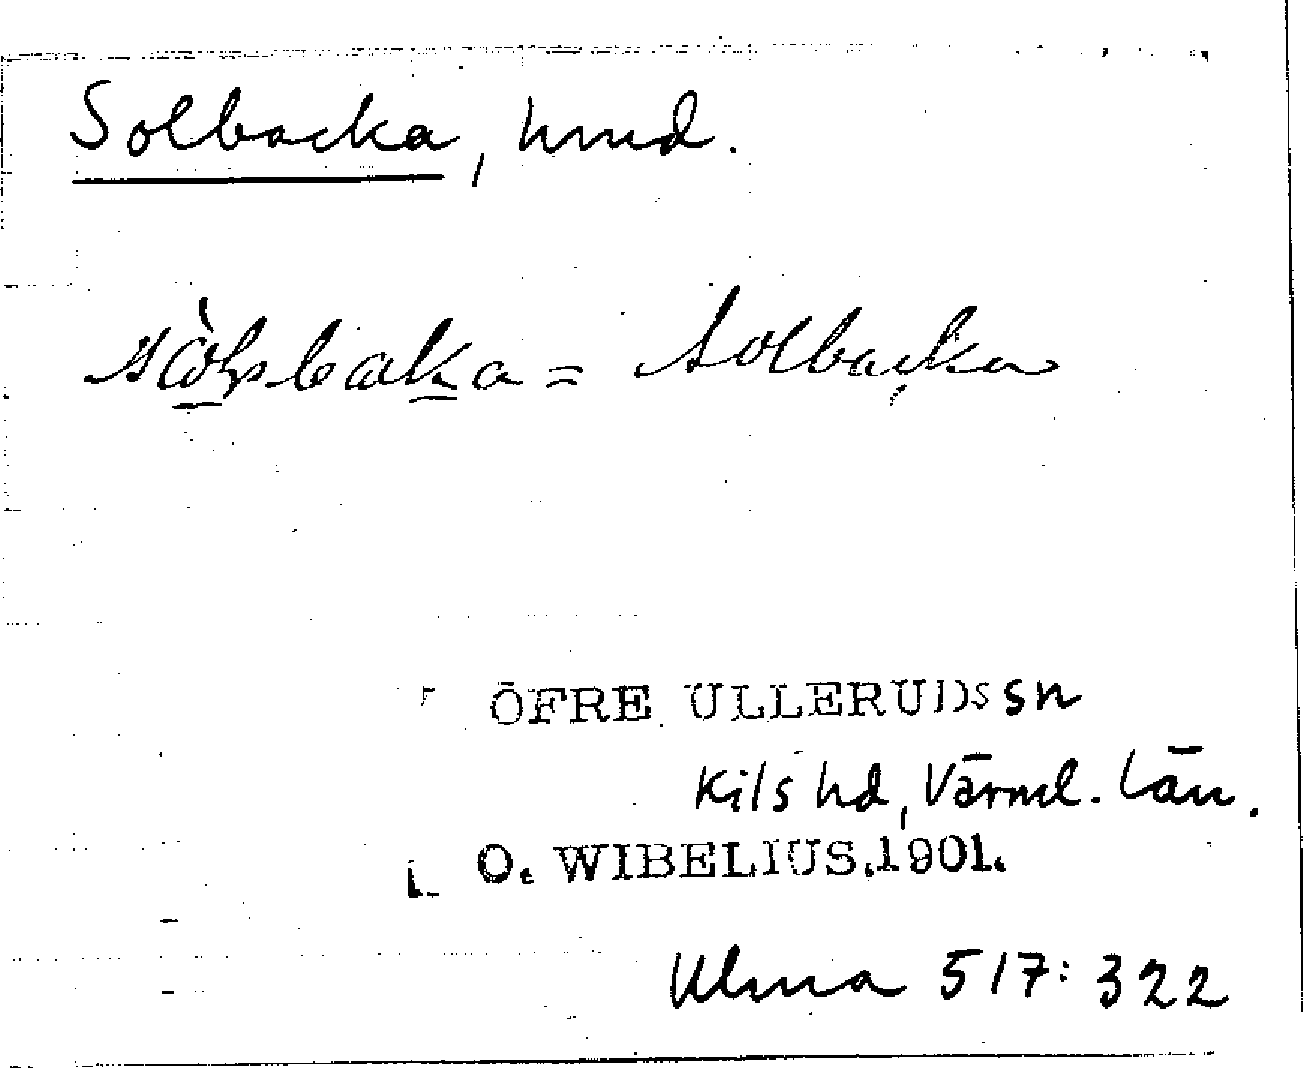 Solbacka, hmd.
sòlbaka = Solbacka
ÖFRE ULLERUDS sn
Kils hd, Värml. län.
O. WIBELIUS. 1901.
Ulma 517:322